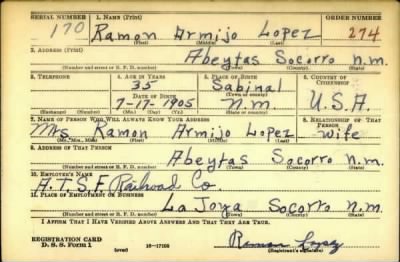 SERIAL NUMBER 1. NAME (Print) ORDER NUMBER
170 Ramon Armijo Lopez 274
(First) (Middle) (Last)
2. ADDRESS (Print)
Abeytas Socorro n.m.
(Number and street or R. F. D. number) (Town) (County) (State)
3. TELEPHONE 4. AGE IN YEARS 5. PLACE OF BIRTH 6. COUNTRY OF CITIZENSHIP
35 Sabinal
DATE OF BIRTH (Town or county)
7-17-1905 n.m. U.S.A.
(Exchange) (Number) (Mo.) (Day) (Yr.) (State or country)
7. NAME OF PERSON WHO WILL ALWAYS KNOW YOUR ADDRESS 8. RELATIONSHIP OF THAT PERSON
Mrs. Ramon Armijo Lopez wife
(Mr., Mrs., Miss) (First) (Middle) (Last)
9. ADDRESS OF THAT PERSON
Abeytas Socorro n.m.
(Number and street or R. F. D. number) (Town) (County) (State)
10. EMPLOYER'S NAME
A.T.S.F. Railroad Co.
11. PLACE OF EMPLOYMENT OR BUSINESS
La Joya Socorro n.m.
(Number and street or R. F. D. number) (Town) (County) (State)
I AFFIRM THAT I HAVE VERIFIED ABOVE ANSWERS AND THAT THEY ARE TRUE.
REGISTRATION CARD
D. S. S. Form 1 (over) 16-17105 Ramon Lopez
(Registrant's signature)